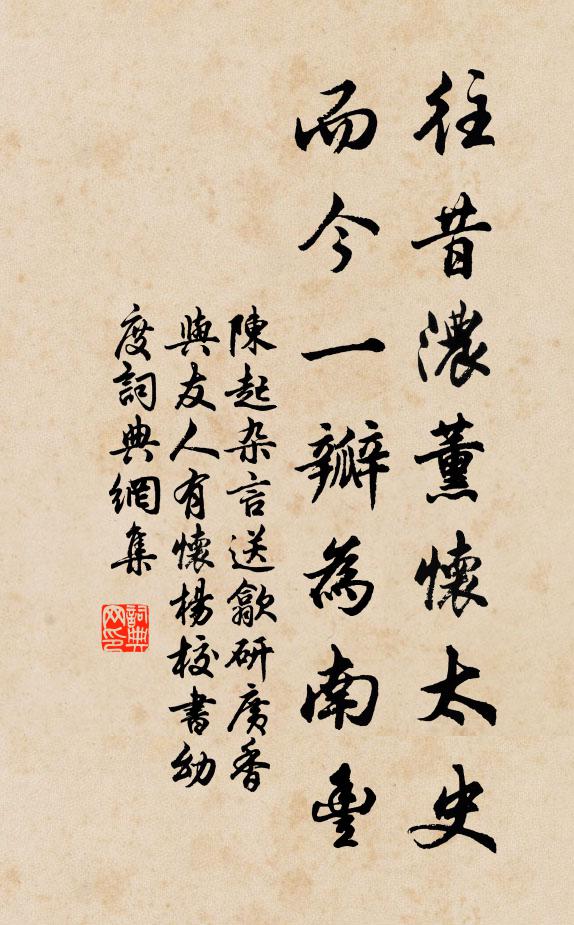 往昔濃薰懷太史
而今一瓣為南豐
陳起杂言送歙研廣香
與友人有懷楊校書幼
度詞典網集
詞典網印